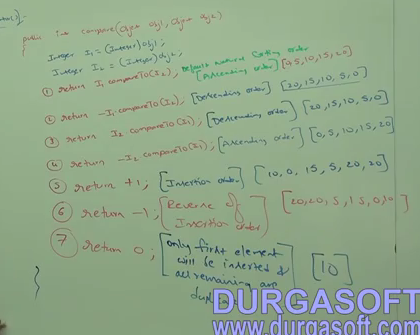 public int compare(Object obj1, Object obj2)
{
Integer I1 = (Integer)obj1;
Integer I2 = (Integer)obj2;
① return I1.compareTo(I2); Default Natural Sorting order [Ascending order] [0,5,10,15,20]
② return -I1.compareTo(I2); [Descending order] [20,15,10,5,0]
③ return I2.compareTo(I1); [Descending order] [20,15,10,5,0]
④ return -I2.compareTo(I1); [Ascending order] [0,5,10,15,20]
⑤ return +1; [Insertion order] [10,0,15,5,20,20]
⑥ return -1; [Reverse of Insertion order] [20,20,5,15,0,10]
⑦ return 0; [only first element will be inserted & all remaining are] [10]
}
DURGASOFT
www.durgasoft.com